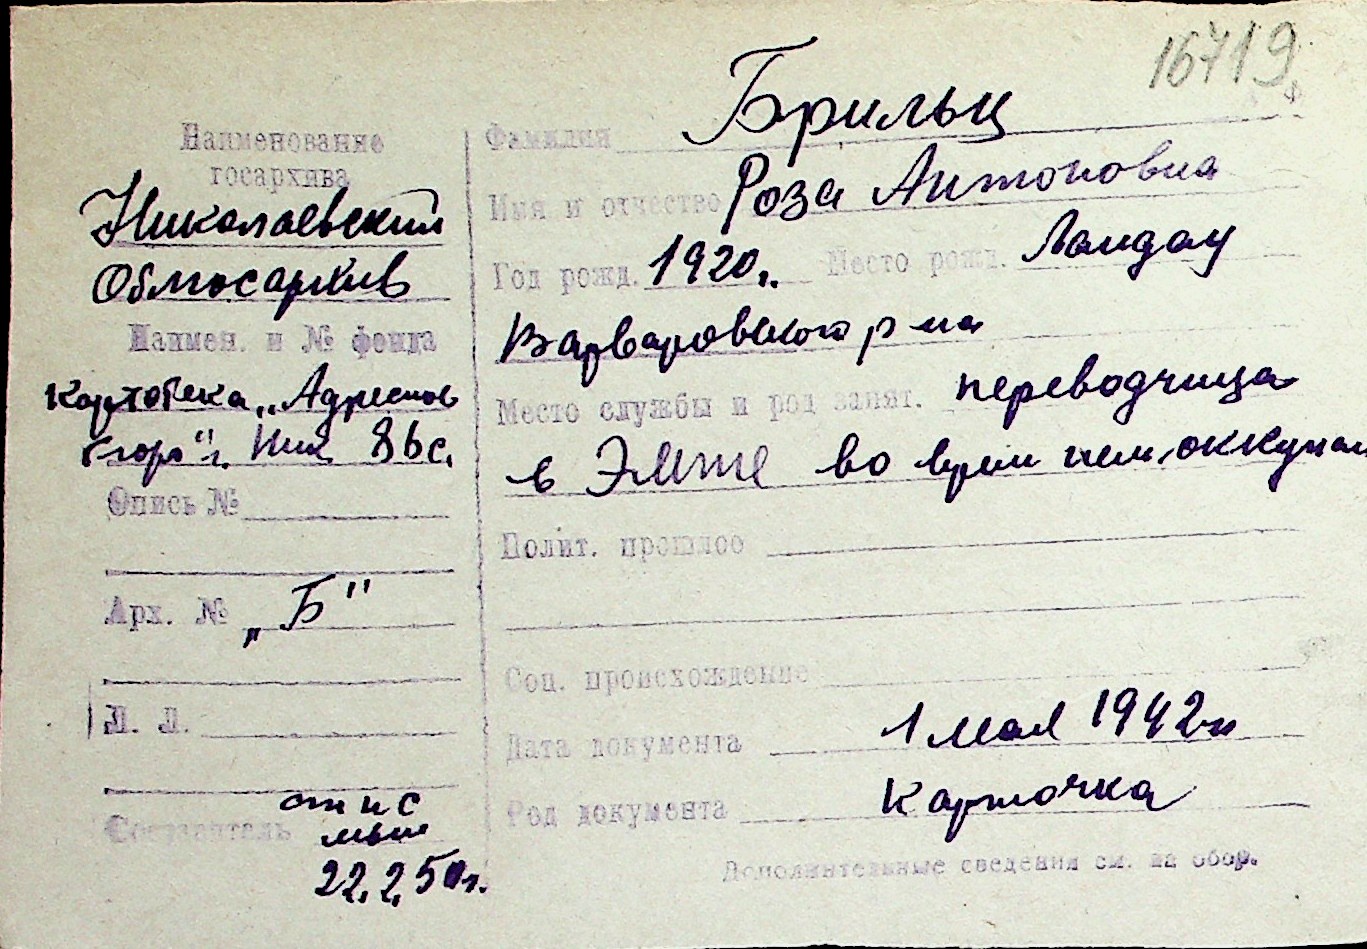 16719
Наименование
госархива
Николаевский
Облгосархив
Наимен. и № фонда
Картотека „Адресное
бюро" г. Ник.
Опись №
Арх. № „Б"
Л. Л.
Составитель
22.2.50 г.
Фамилия Брильц
Имя и отчество Роза Антоновна
Год рожд. 1920 г. Место рожд. Ландау
Варваровского р-на
Место службы и род занят. переводчица
в во врем нем. оккупац
Полит. прошлое
Соц. происхождение
Дата документа 1 мая 1942 г.
Род документа Карточка
Дополнительные сведения см. на обор.